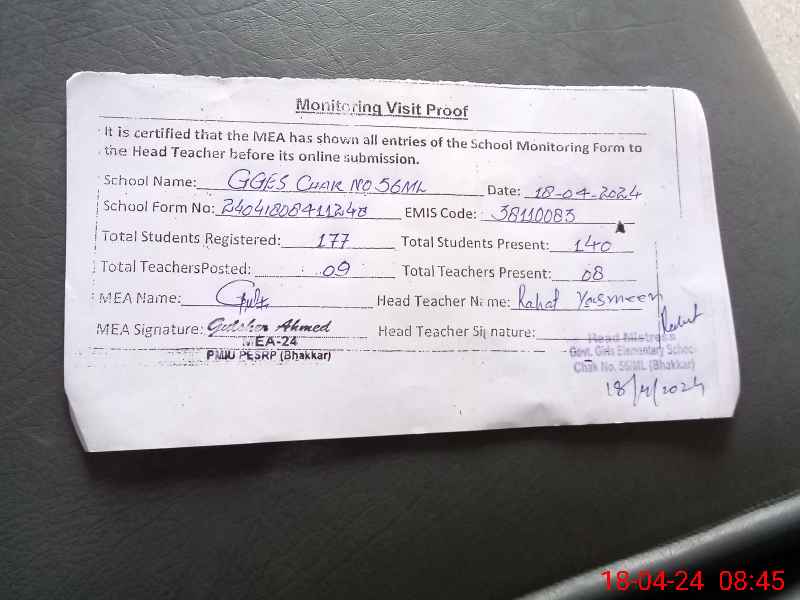 Monitoring Visit Proof
It is certified that the MEA has shown all entries of the School Monitoring Form to
the Head Teacher before its online submission.
School Name: GGES CHAK NO 56ML Date: 18-04-2024
School Form No: 24041808411248 EMIS Code: 38110083
Total Students Registered: 177 Total Students Present: 140
Total TeachersPosted: 09 Total Teachers Present: 08
MEA Name: Head Teacher Name: Rahat Yasmeen
MEA Signature: Gulsher Ahmed Head Teacher Signature:
MEA-24
PMIU PESRP (Bhakkar)
Head Mistress
Govt. Girls Elementary School
Chak No. 56/ML (Bhakkar)
18/4/2024
18-04-24 08:45